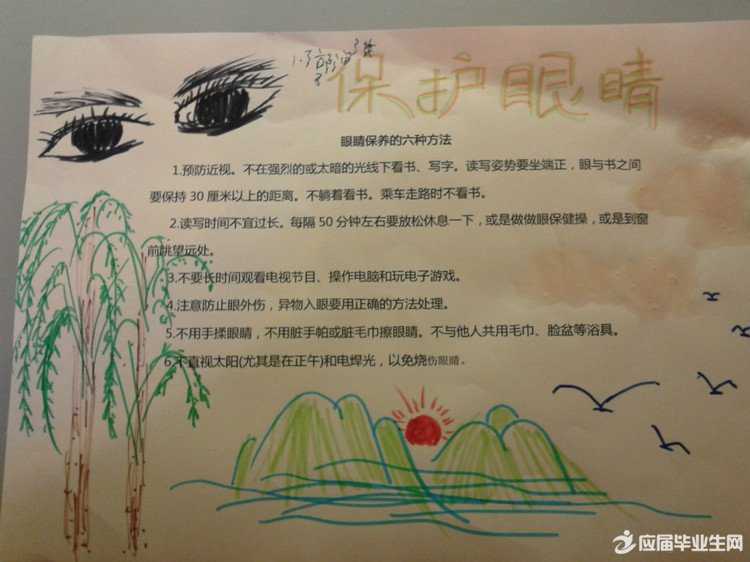 保护眼睛
眼睛保养的六种方法
1.预防近视。不在强烈的或太暗的光线下看书、写字。读写姿势要坐端正，眼与书之间
要保持30厘米以上的距离。不躺着看书。乘车走路时不看书。
2.读写时间不宜过长。每隔50分钟左右要放松休息一下，或是做做眼保健操，或是到窗
前眺望远处。
3.不要长时间观看电视节目、操作电脑和玩电子游戏。
4.注意防止眼外伤，异物入眼要用正确的方法处理。
5.不用手揉眼睛，不用脏手帕或脏毛巾擦眼睛。不与他人共用毛巾、脸盆等浴具。
6.不直视太阳(尤其是在正午)和电焊光，以免烧伤眼睛。
应届毕业生网